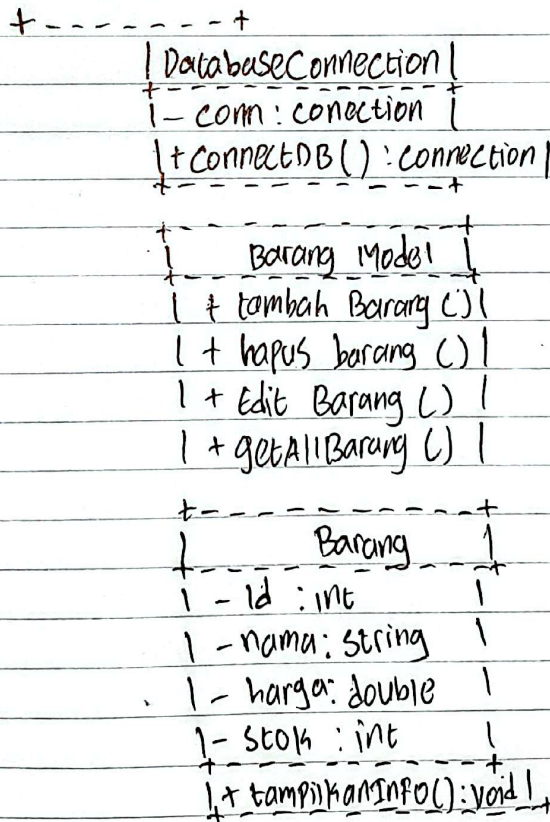 +-------+
| DatabaseConnection |
+-----------+
|- conn : conection |
|+ ConnectDB() : connection |
+-----------+
+-----------+
| Barang Model |
+-----------+
| + tambah Barang () |
| + hapus barang () |
| + Edit Barang () |
| + getAllBarang () |
+-----------+
| Barang |
+-----------+
| - Id : int |
| - nama : string |
| - harga : double |
|- stok : int |
+-----------+
|+ tampilkanInfo() : void |
+-----------+